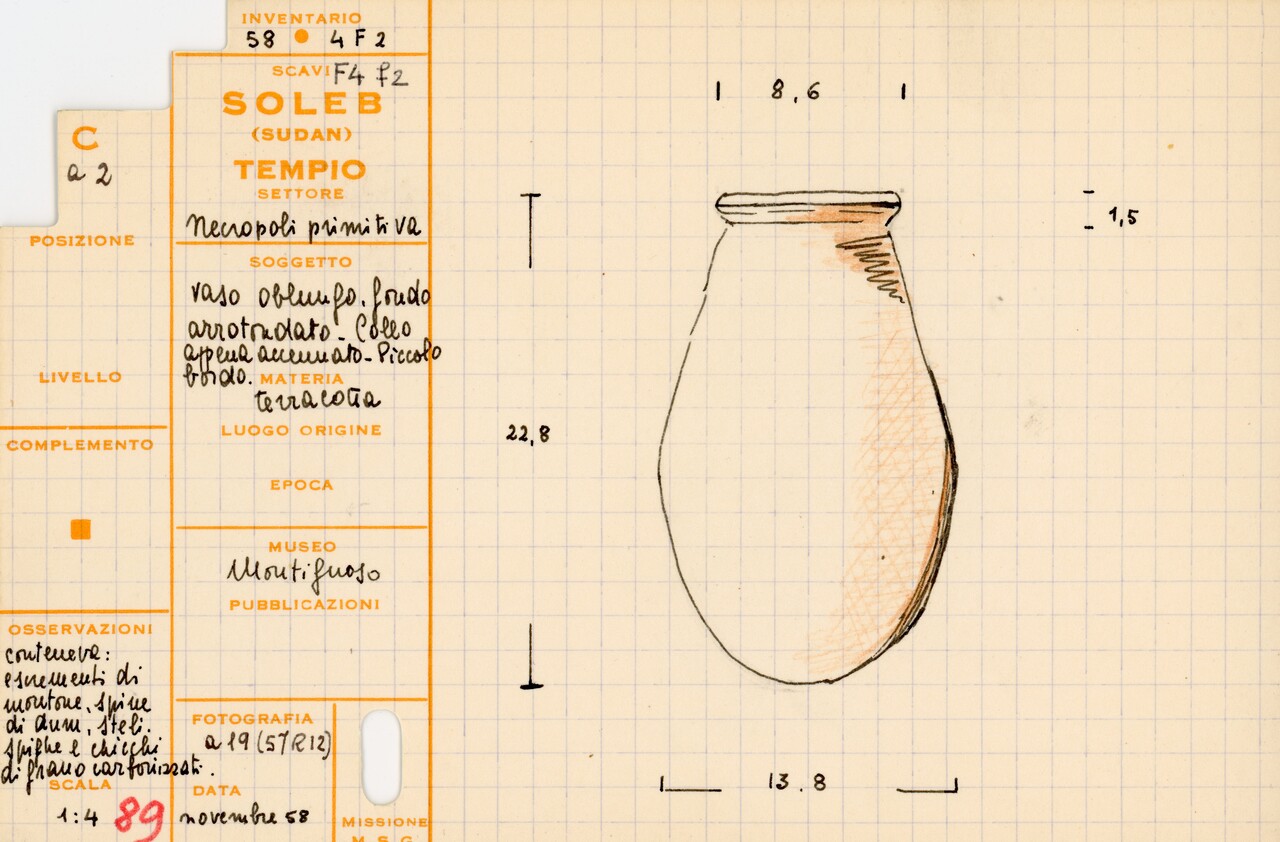 INVENTARIO
58 4 F 2
SCAVI F4 f2
SOLEB
(SUDAN)
TEMPIO
SETTORE
Necropoli primitiva
SOGGETTO
vaso oblungo. fondo
arrotondato - Collo
appena accennato - Piccolo
bordo.
MATERIA
terracotta
LUOGO ORIGINE
EPOCA
MUSEO
Montignoso
PUBBLICAZIONI
FOTOGRAFIA
a 19 (57R12)
DATA
novembre 58
MISSIONE
M. S. G.
C
a 2
POSIZIONE
LIVELLO
COMPLEMENTO
OSSERVAZIONI
conteneva:
escrementi di
montone, spine
di dum, steli.
spighe e chicchi
di grano carbonizzati.
SCALA
1:4 89
8,6
1,5
22,8
13.8